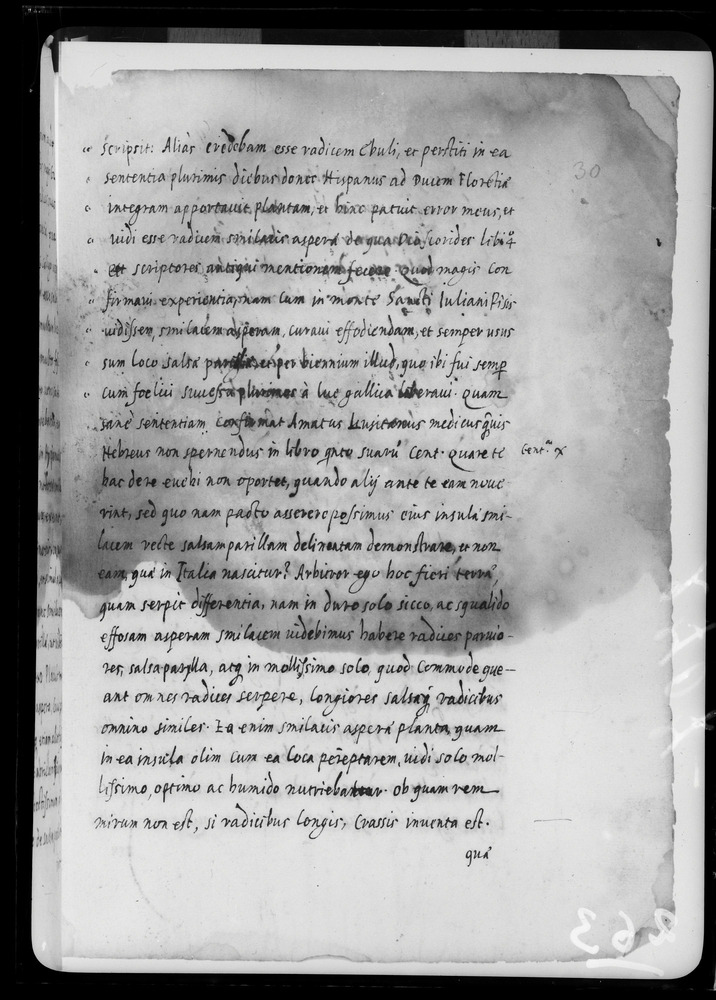 30
" Scripsit: Aliàs credebam esse radicem Ebuli, et perstiti in ea
" sententia plurimis diebus donec Hispanus ad Ducem Floretiæ
" integram apportauit plantam, et hinc patuit error meus, et
" uidi esse radicem smilacis asperæ de qua Dioscorides lib: 4
" et scriptores antiqui mentionem fecere. Quod magis con
" firmaui experientia, nam cum in monte Sancti Iuliani Pisis
" uidissem smilacem asperam, curaui effodiendam, et semper usus
" sum loco salsæ et per biennium illud, quo ibi fui semp
" cum foelici successu plurimos à lue gallica liberaui. Quam
sanè sententiam confirmat Amatus Lusitanus medicus quis
Hebreus non spernendus in libro qnto suarũ Cent. Quare te Cent.ᵃ x
hac de re euehi non oportet, quando alij ante te eam noue
rint, sed quo nam pacto asserere possimus eius insulæ smi-
lacem recte salsamparillam delineatam demonstrare, et non
eam, quæ in Italia nascitur? Arbitror ego hoc fieri terræ,
quam serpit differentia, nam in duro solo sicco, ac squalido
effosam asperam smilacem uidebimus habere radices paruio-
res, salsaparilla, atq in mollissimo solo, quod commode que-
ant omnes radices serpere, longiores salsæq radicibus
omnino similes. Ea enim smilacis asperæ planta, quam
in ea insula olim cum ea loca pereptarem, uidi solo mol-
lissimo, optimo ac humido nutriebatur. ob quam rem
mirum non est, si radicibus longis, crassis inuenta est.
quæ
263